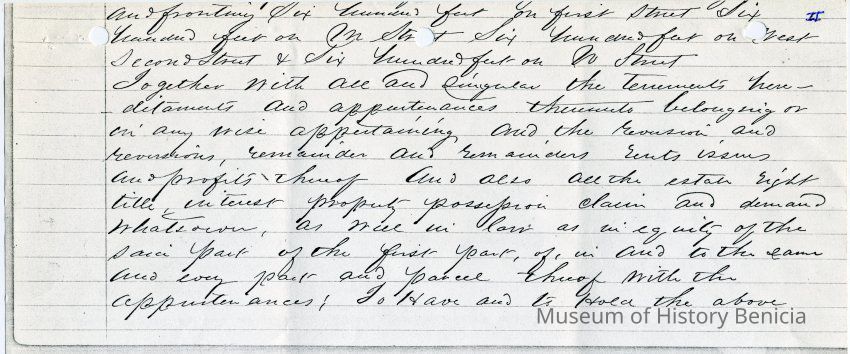 and fronting Six hundred feet on first Street Six II
hundred feet on M Street Six hundred feet on West
Second Street & Six hundred feet on N Street
Together with all and Singular the tenements here-
-ditaments and appurtenances thereunto belonging or
in any wise appertaining and the revusion and
reversions, remainder and remainders rents issues
and profits thereof And also all the estate right
title, interest property possession claim and demand
whatsoever, as well in law as in equity of the
said part of the first part, of, in and to the same
and every part and parcel thereof with the
appurtenances; To Have and to Hold the above
Museum of History Benicia